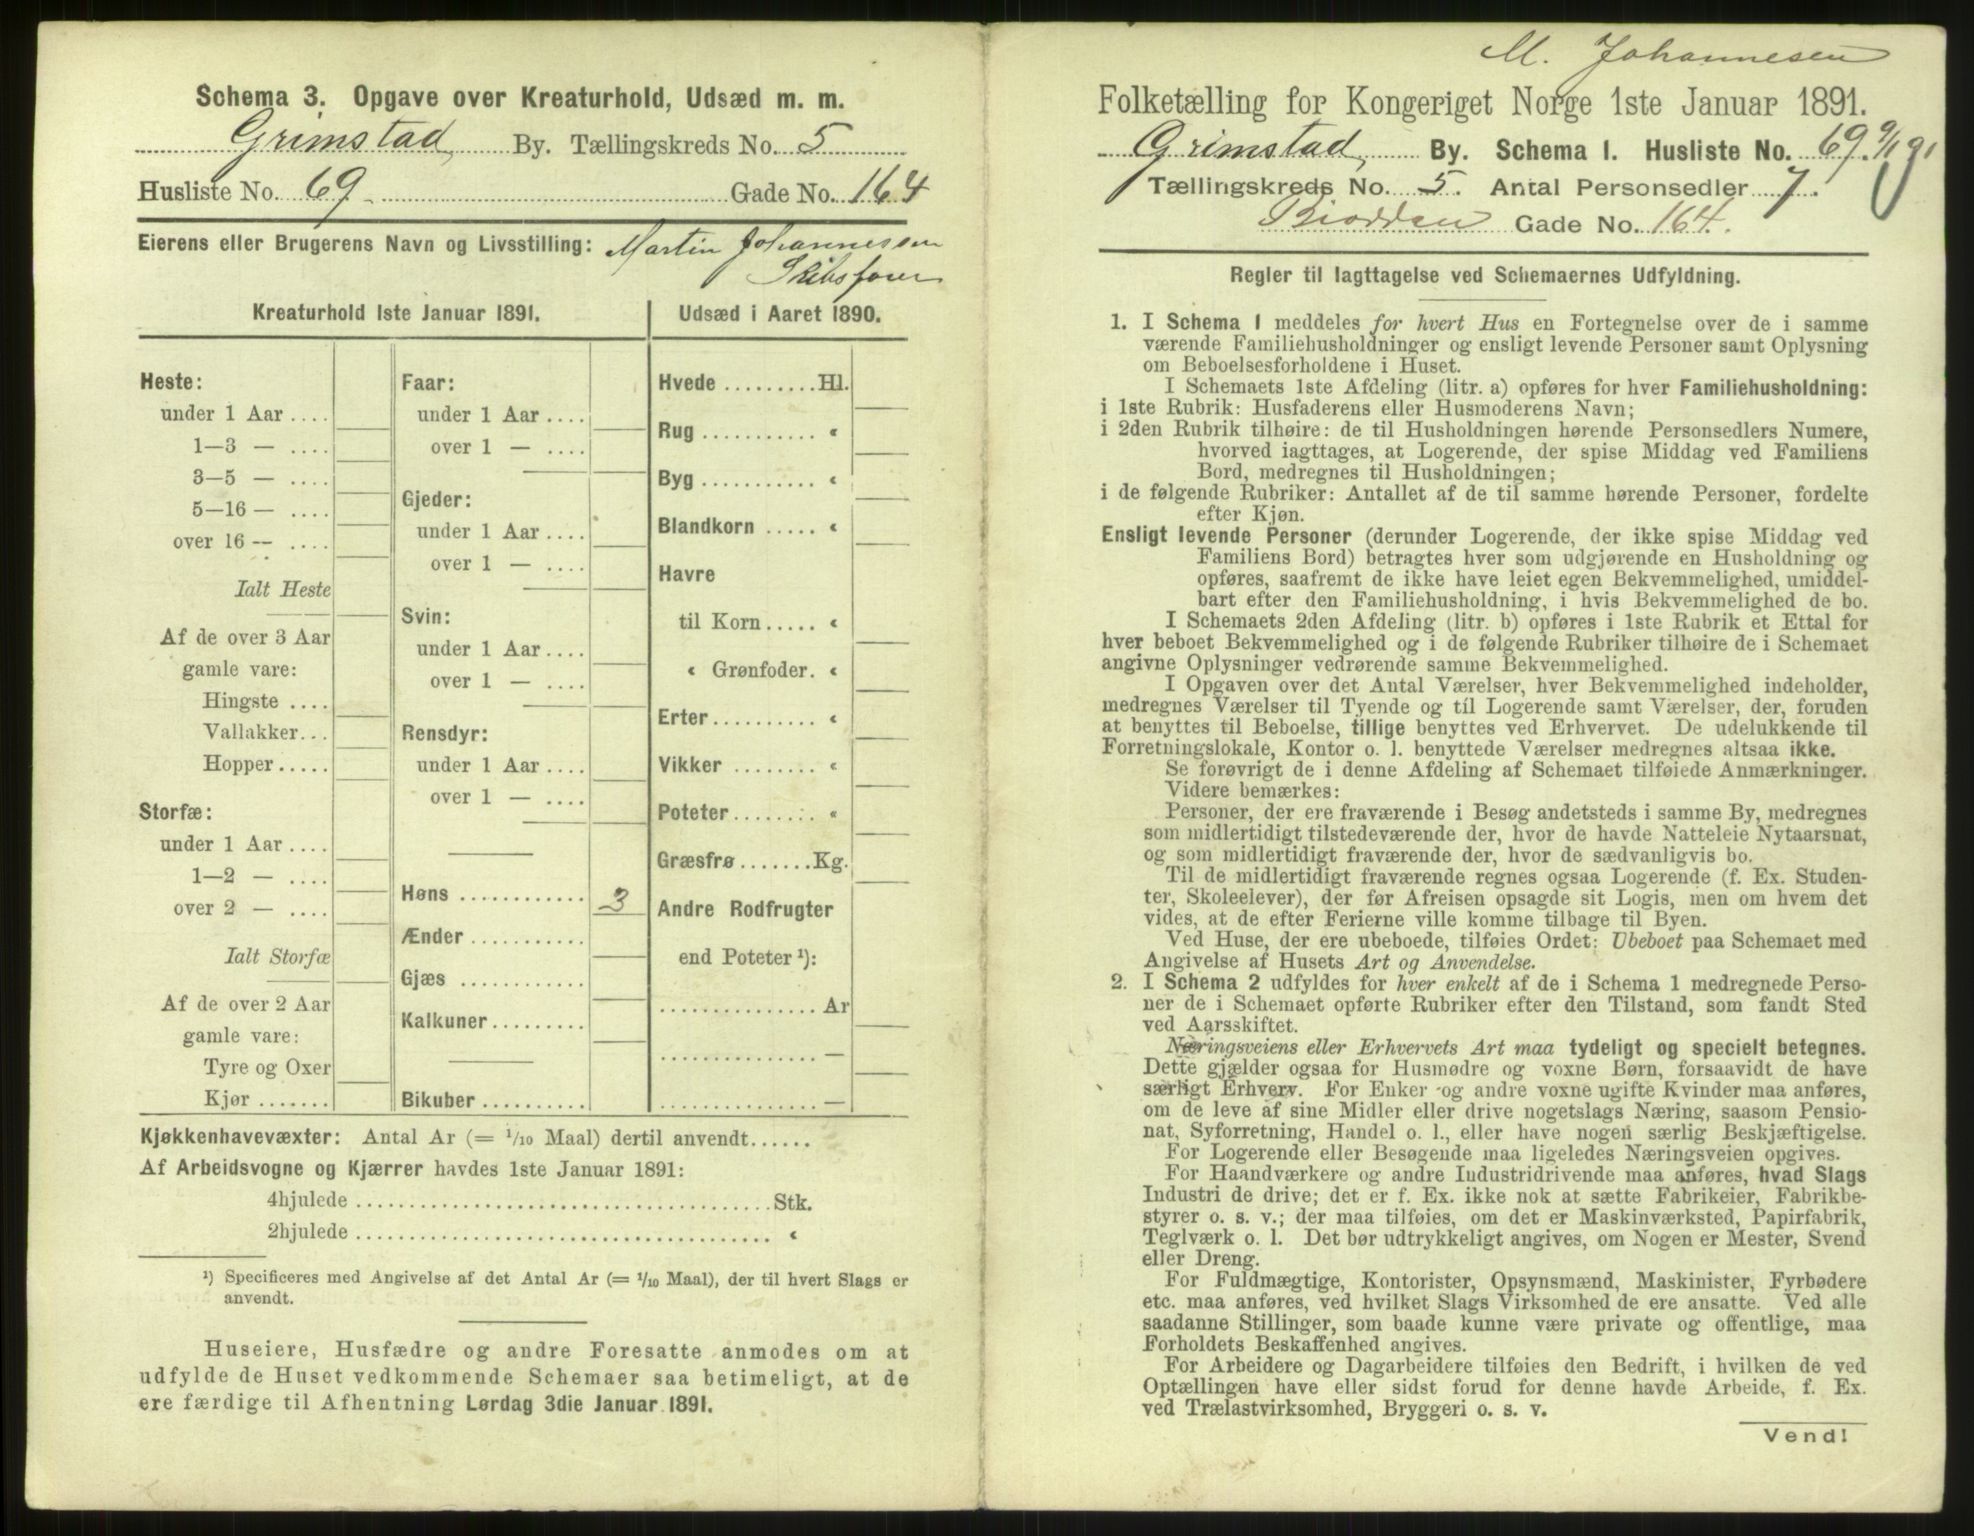 Schema 3. Opgave over Kreaturhold, Udsæd m. m.
Grimstad By. Tællingskreds No. 5
Husliste No. 69 Gade No. 164
Eierens eller Brugerens Navn og Livsstilling: Martin Johannessen
Skibsfører
Kreaturhold 1ste Januar 1891.
Heste:
under 1 Aar ....
1—3 — ....
3—5 — ....
5—16 — ....
over 16 — ....
Ialt Heste
Af de over 3 Aar
gamle vare:
Hingste ....
Vallakker...
Hopper.....
Storfæ:
under 1 Aar ....
1—2 — ....
over 2 — ....
Ialt Storfæ
Af de over 2 Aar
gamle vare:
Tyre og Oxer
Kjør .......
Faar:
under 1 Aar ....
over 1 — ....
Gjeder:
under 1 Aar ....
over 1 — ....
Svin:
under 1 Aar ....
over 1 — ....
Rensdyr:
under 1 Aar ....
over 1 — ....
Høns ............ 3
Ænder ...........
Gjæs ............
Kalkuner.........
Bikuber ..........
Udsæd i Aaret 1890.
Hvede .........Hl.
Rug ........... «
Byg ........... «
Blandkorn ..... «
Havre
til Korn..... «
« Grønfoder. «
Erter.......... «
Vikker ........ «
Poteter........ «
Græsfrø .......Kg.
Andre Rodfrugter
end Poteter ¹):
............... Ar
............... —
............... —
Kjøkkenhavevæxter: Antal Ar (= 1/10 Maal) dertil anvendt......
Af Arbeidsvogne og Kjærrer havdes 1ste Januar 1891:
4hjulede ........................................Stk.
2hjulede ........................................ «
¹) Specificeres med Angivelse af det Antal Ar (= 1/10 Maal), der til hvert Slags er
anvendt.
Huseiere, Husfædre og andre Foresatte anmodes om at
udfylde de Huset vedkommende Schemaer saa betimeligt, at de
ere færdige til Afhentning Lørdag 3die Januar 1891.
M. Johannesen
Folketælling for Kongeriget Norge 1ste Januar 1891.
Grimstad By. Schema 1. Husliste No. 69. 9/1 91
Tællingskreds No. 5. Antal Personsedler 7.
Gade No. 164.
Regler til Iagttagelse ved Schemaernes Udfyldning.
1. I Schema 1 meddeles for hvert Hus en Fortegnelse over de i samme
værende Familiehusholdninger og ensligt levende Personer samt Oplysning
om Beboelsesforholdene i Huset.
I Schemaets 1ste Afdeling (litr. a) opføres for hver Familiehusholdning:
i 1ste Rubrik: Husfaderens eller Husmoderens Navn;
i 2den Rubrik tilhøire: de til Husholdningen hørende Personsedlers Numere,
hvorved iagttages, at Logerende, der spise Middag ved Familiens
Bord, medregnes til Husholdningen;
i de følgende Rubriker: Antallet af de til samme hørende Personer, fordelte
efter Kjøn.
Ensligt levende Personer (derunder Logerende, der ikke spise Middag ved
Familiens Bord) betragtes hver som udgjørende en Husholdning og
opføres, saafremt de ikke have leiet egen Bekvemmelighed, umiddel-
bart efter den Familiehusholdning, i hvis Bekvemmelighed de bo.
I Schemaets 2den Afdeling (litr. b) opføres i 1ste Rubrik et Ettal for
hver beboet Bekvemmelighed og i de følgende Rubriker tilhøire de i Schemaet
angivne Oplysninger vedrørende samme Bekvemmelighed.
I Opgaven over det Antal Værelser, hver Bekvemmelighed indeholder,
medregnes Værelser til Tyende og til Logerende samt Værelser, der, foruden
at benyttes til Beboelse, tillige benyttes ved Erhvervet. De udelukkende til
Forretningslokale, Kontor o. l. benyttede Værelser medregnes altsaa ikke.
Se forøvrigt de i denne Afdeling af Schemaet tilføiede Anmærkninger.
Videre bemærkes:
Personer, der ere fraværende i Besøg andetsteds i samme By, medregnes
som midlertidigt tilstedeværende der, hvor de havde Natteleie Nytaarsnat,
og som midlertidigt fraværende der, hvor de sædvanligvis bo.
Til de midlertidigt fraværende regnes ogsaa Logerende (f. Ex. Studen-
ter, Skoleelever), der før Afreisen opsagde sit Logis, men om hvem det
vides, at de efter Ferierne ville komme tilbage til Byen.
Ved Huse, der ere ubeboede, tilføies Ordet: Ubeboet paa Schemaet med
Angivelse af Husets Art og Anvendelse.
2. I Schema 2 udfyldes for hver enkelt af de i Schema 1 medregnede Perso-
ner de i Schemaet opførte Rubriker efter den Tilstand, som fandt Sted
ved Aarsskiftet.
Næringsveiens eller Erhvervets Art maa tydeligt og specielt betegnes.
Dette gjælder ogsaa for Husmødre og voxne Børn, forsaavidt de have
særligt Erhverv. For Enker og andre voxne ugifte Kvinder maa anføres,
om de leve af sine Midler eller drive nogetslags Næring, saasom Pensio-
nat, Syforretning, Handel o. l., eller have nogen særlig Beskjæftigelse.
For Logerende eller Besøgende maa ligeledes Næringsveien opgives.
For Haandværkere og andre Industridrivende maa anføres, hvad Slags
Industri de drive; det er f. Ex. ikke nok at sætte Fabrikeier, Fabrikbe-
styrer o. s. v.; der maa tilføies, om det er Maskinværksted, Papirfabrik,
Teglværk o. l. Det bør udtrykkeligt angives, om Nogen er Mester, Svend
eller Dreng.
For Fuldmægtige, Kontorister, Opsynsmænd, Maskinister, Fyrbødere
etc. maa anføres, ved hvilket Slags Virksomhed de ere ansatte. Ved alle
saadanne Stillinger, som baade kunne være private og offentlige, maa
Forholdets Beskaffenhed angives.
For Arbeidere og Dagarbeidere tilføies den Bedrift, i hvilken de ved
Optællingen have eller sidst forud for denne havde Arbeide, f. Ex.
ved Trælastvirksomhed, Bryggeri o. s. v.
Vend!